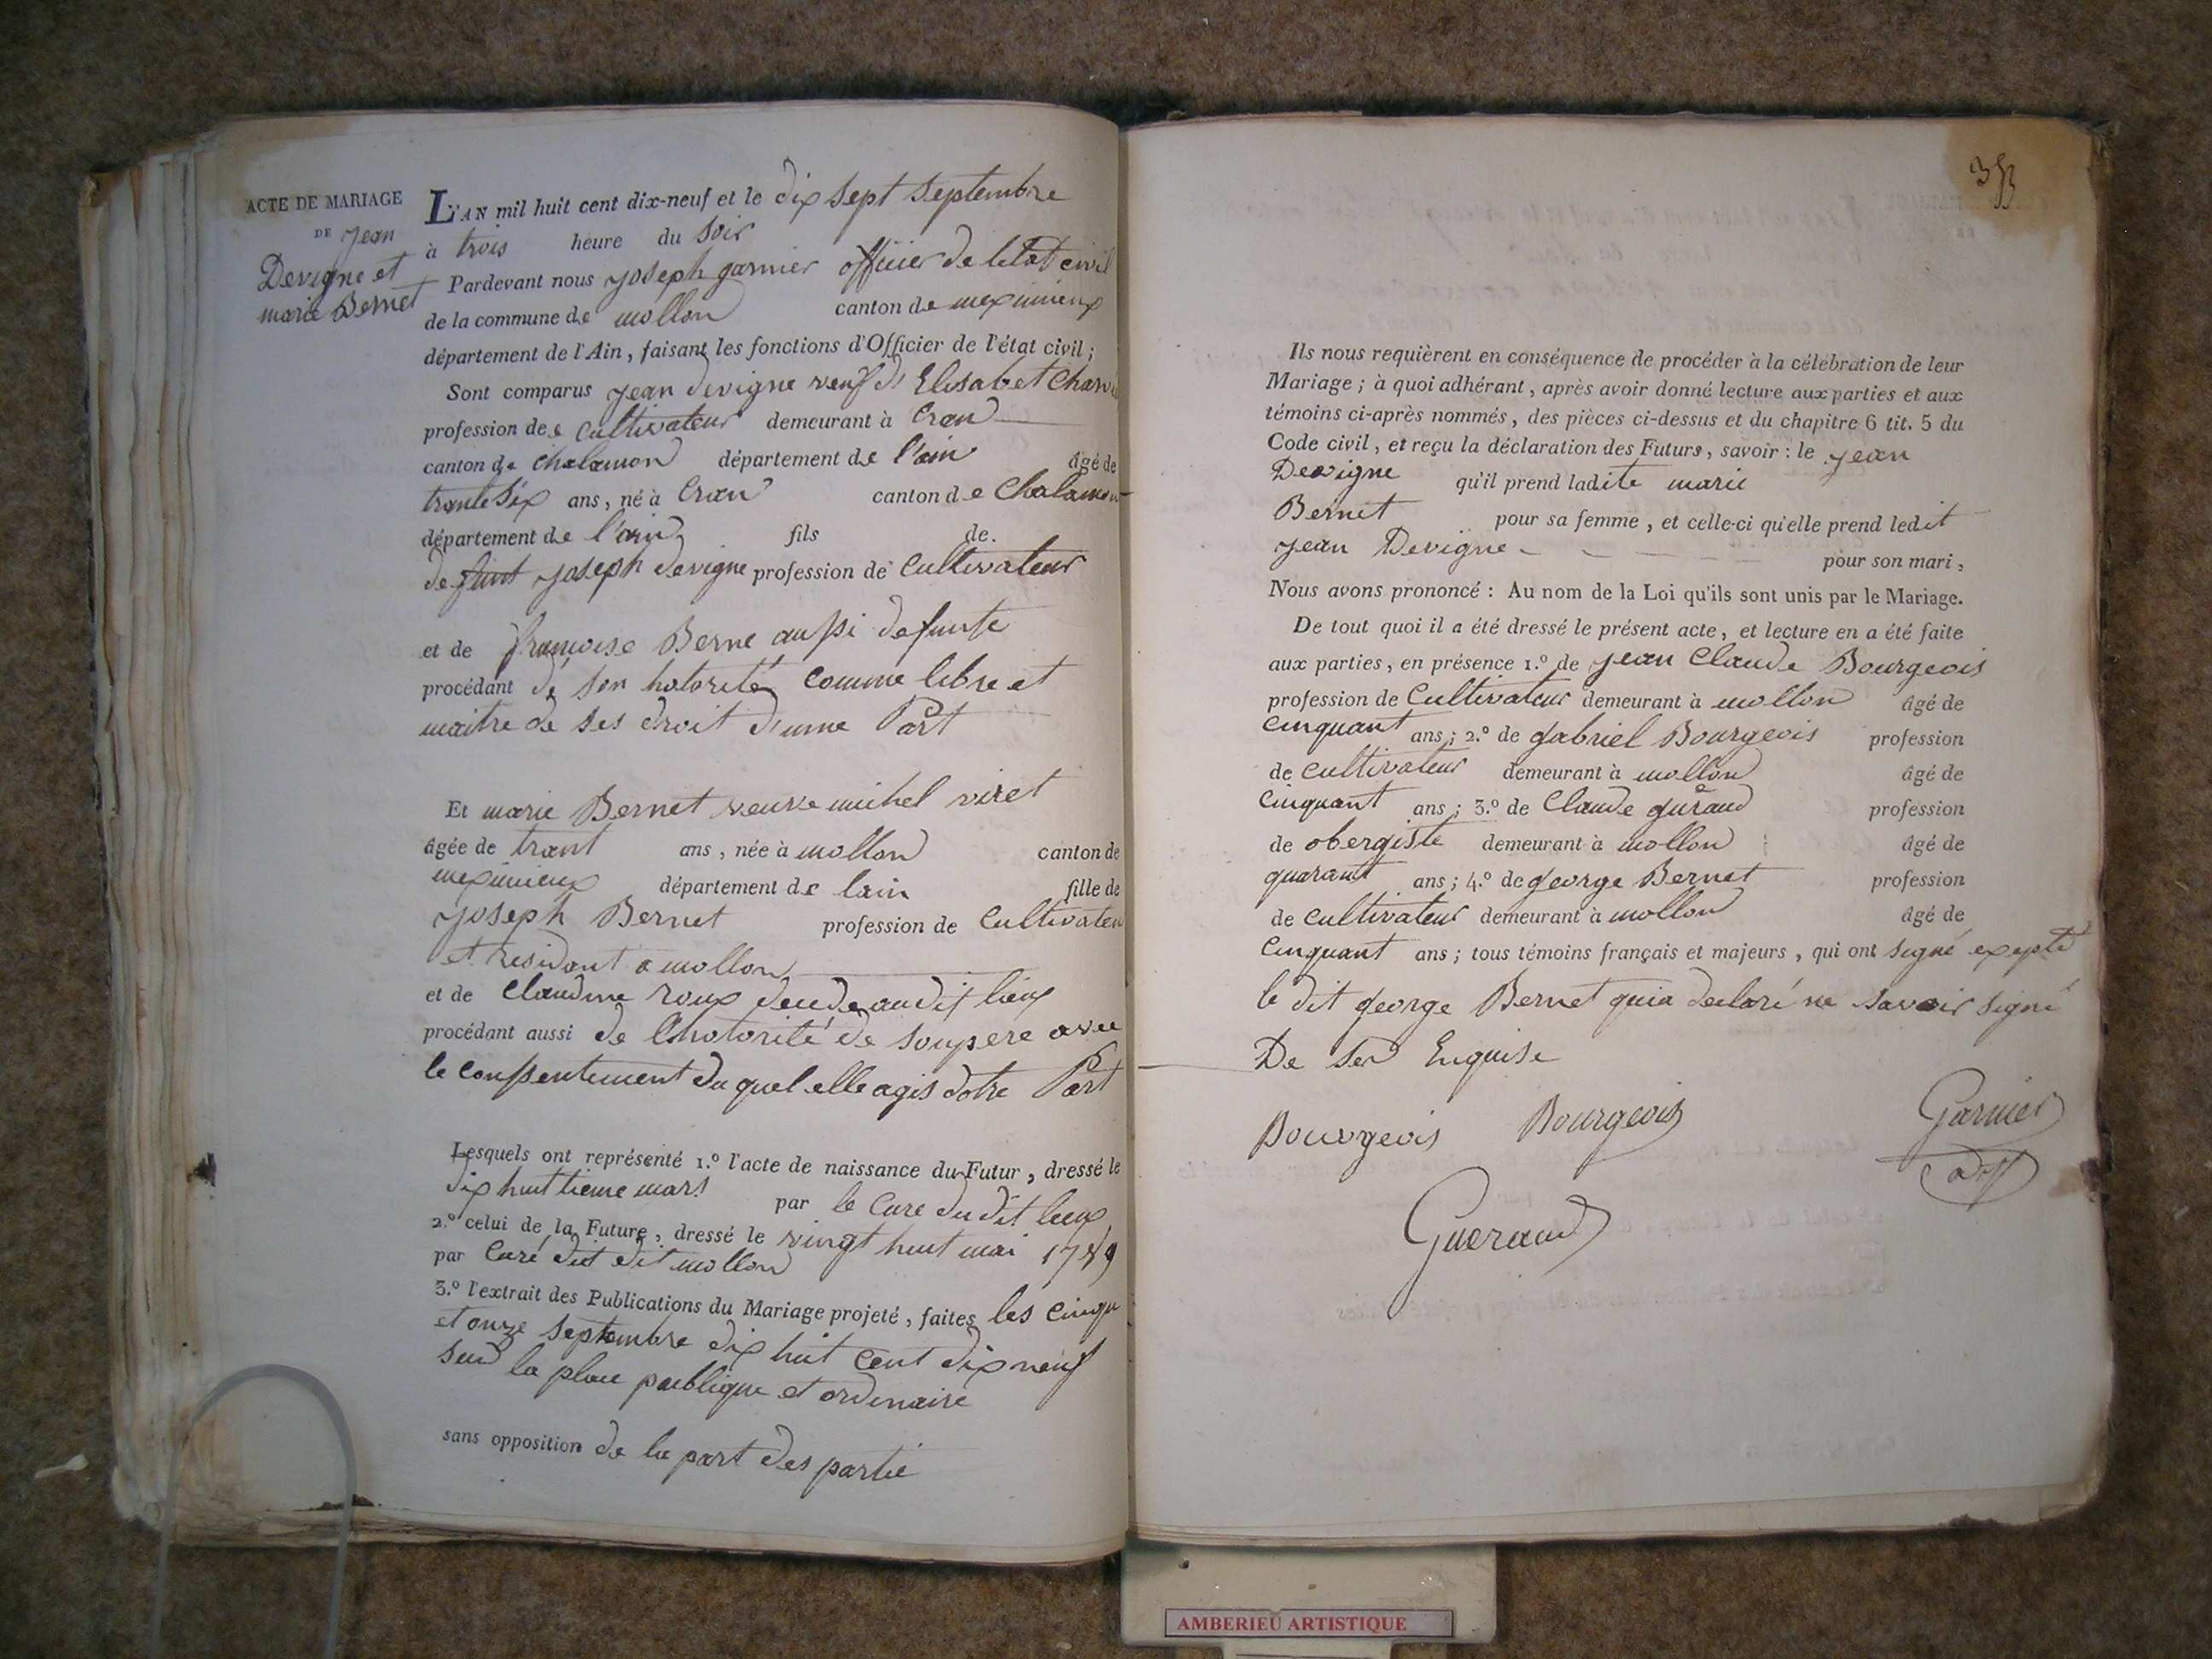 ACTE DE MARIAGE
DE jean
Devigne et
marie Bernet
L'AN mil huit cent dix-neuf et le dix sept septembre
à trois heure du soir
Pardevant nous joseph garnier officier de letat civil
de la commune de mollon canton de meximieux
département de l'Ain, faisant les fonctions d'Officier de l'état civil;
Sont comparus jean devigne veuf d' Elisabet
profession de cultivateur demeurant à Cran
canton de chalamon département de l'ain âgé de
trante six ans, né à Cran canton de Chalamon
département de l'ain fils de
defunt joseph devigne profession de cultivateur
et de francoise Berne aussi defunte
procédant de son hotorité comme libre et
maitre de ses droit d'unne Part
Et marie Bernet veuve michel viret
âgée de trant ans, née à mollon canton de
meximieux département de lain fille de
joseph Bernet profession de cultivateu
et residant a mollon
et de claudine roux audit lieux
procédant aussi de lhotorité de son pere avec
le consentement du quel elle agis dotre Part
Lesquels ont représenté 1.º l'acte de naissance du Futur, dressé le
dix huittieme mars par le Cure du dit lieux
2.º celui de la Future, dressé le vingt huit mai 1789
par Curé dudit mollon
3.º l'extrait des Publications du Mariage projeté, faites les cinqu
et onze septembre dix huit cent dix neuf
sur la place publique et ordinaire
sans opposition de la part des partie
Ils nous requièrent en conséquence de procéder à la célébration de leur
Mariage; à quoi adhérant, après avoir donné lecture aux parties et aux
témoins ci-après nommés, des pièces ci-dessus et du chapitre 6 tit. 5 du
Code civil, et reçu la déclaration des Futurs, savoir: le jean
Devigne qu'il prend ladite marie
Bernet pour sa femme, et celle-ci qu'elle prend ledit
jean Devigne pour son mari,
Nous avons prononcé: Au nom de la Loi qu'ils sont unis par le Mariage.
De tout quoi il a été dressé le présent acte, et lecture en a été faite
aux parties, en présence 1.º de jean Claude Bourgeois
profession de Cultivateur demeurant à mollon âgé de
cinquant ans; 2.º de gabriel Bourgeois profession
de cultivateur demeurant à mollon âgé de
cinquant ans; 3.º de Claude guéraud profession
de obergiste demeurant à mollon âgé de
quarant ans; 4.º de george Bernet profession
de cultivateur demeurant à mollon âgé de
cinquant ans; tous témoins français et majeurs, qui ont signé expepté
le dit george Bernet quia declaré ne savoir signé
De ser Enquise
Bourgeois Bourgeois Garnier
Gueraud
AMBERIEU ARTISTIQUE